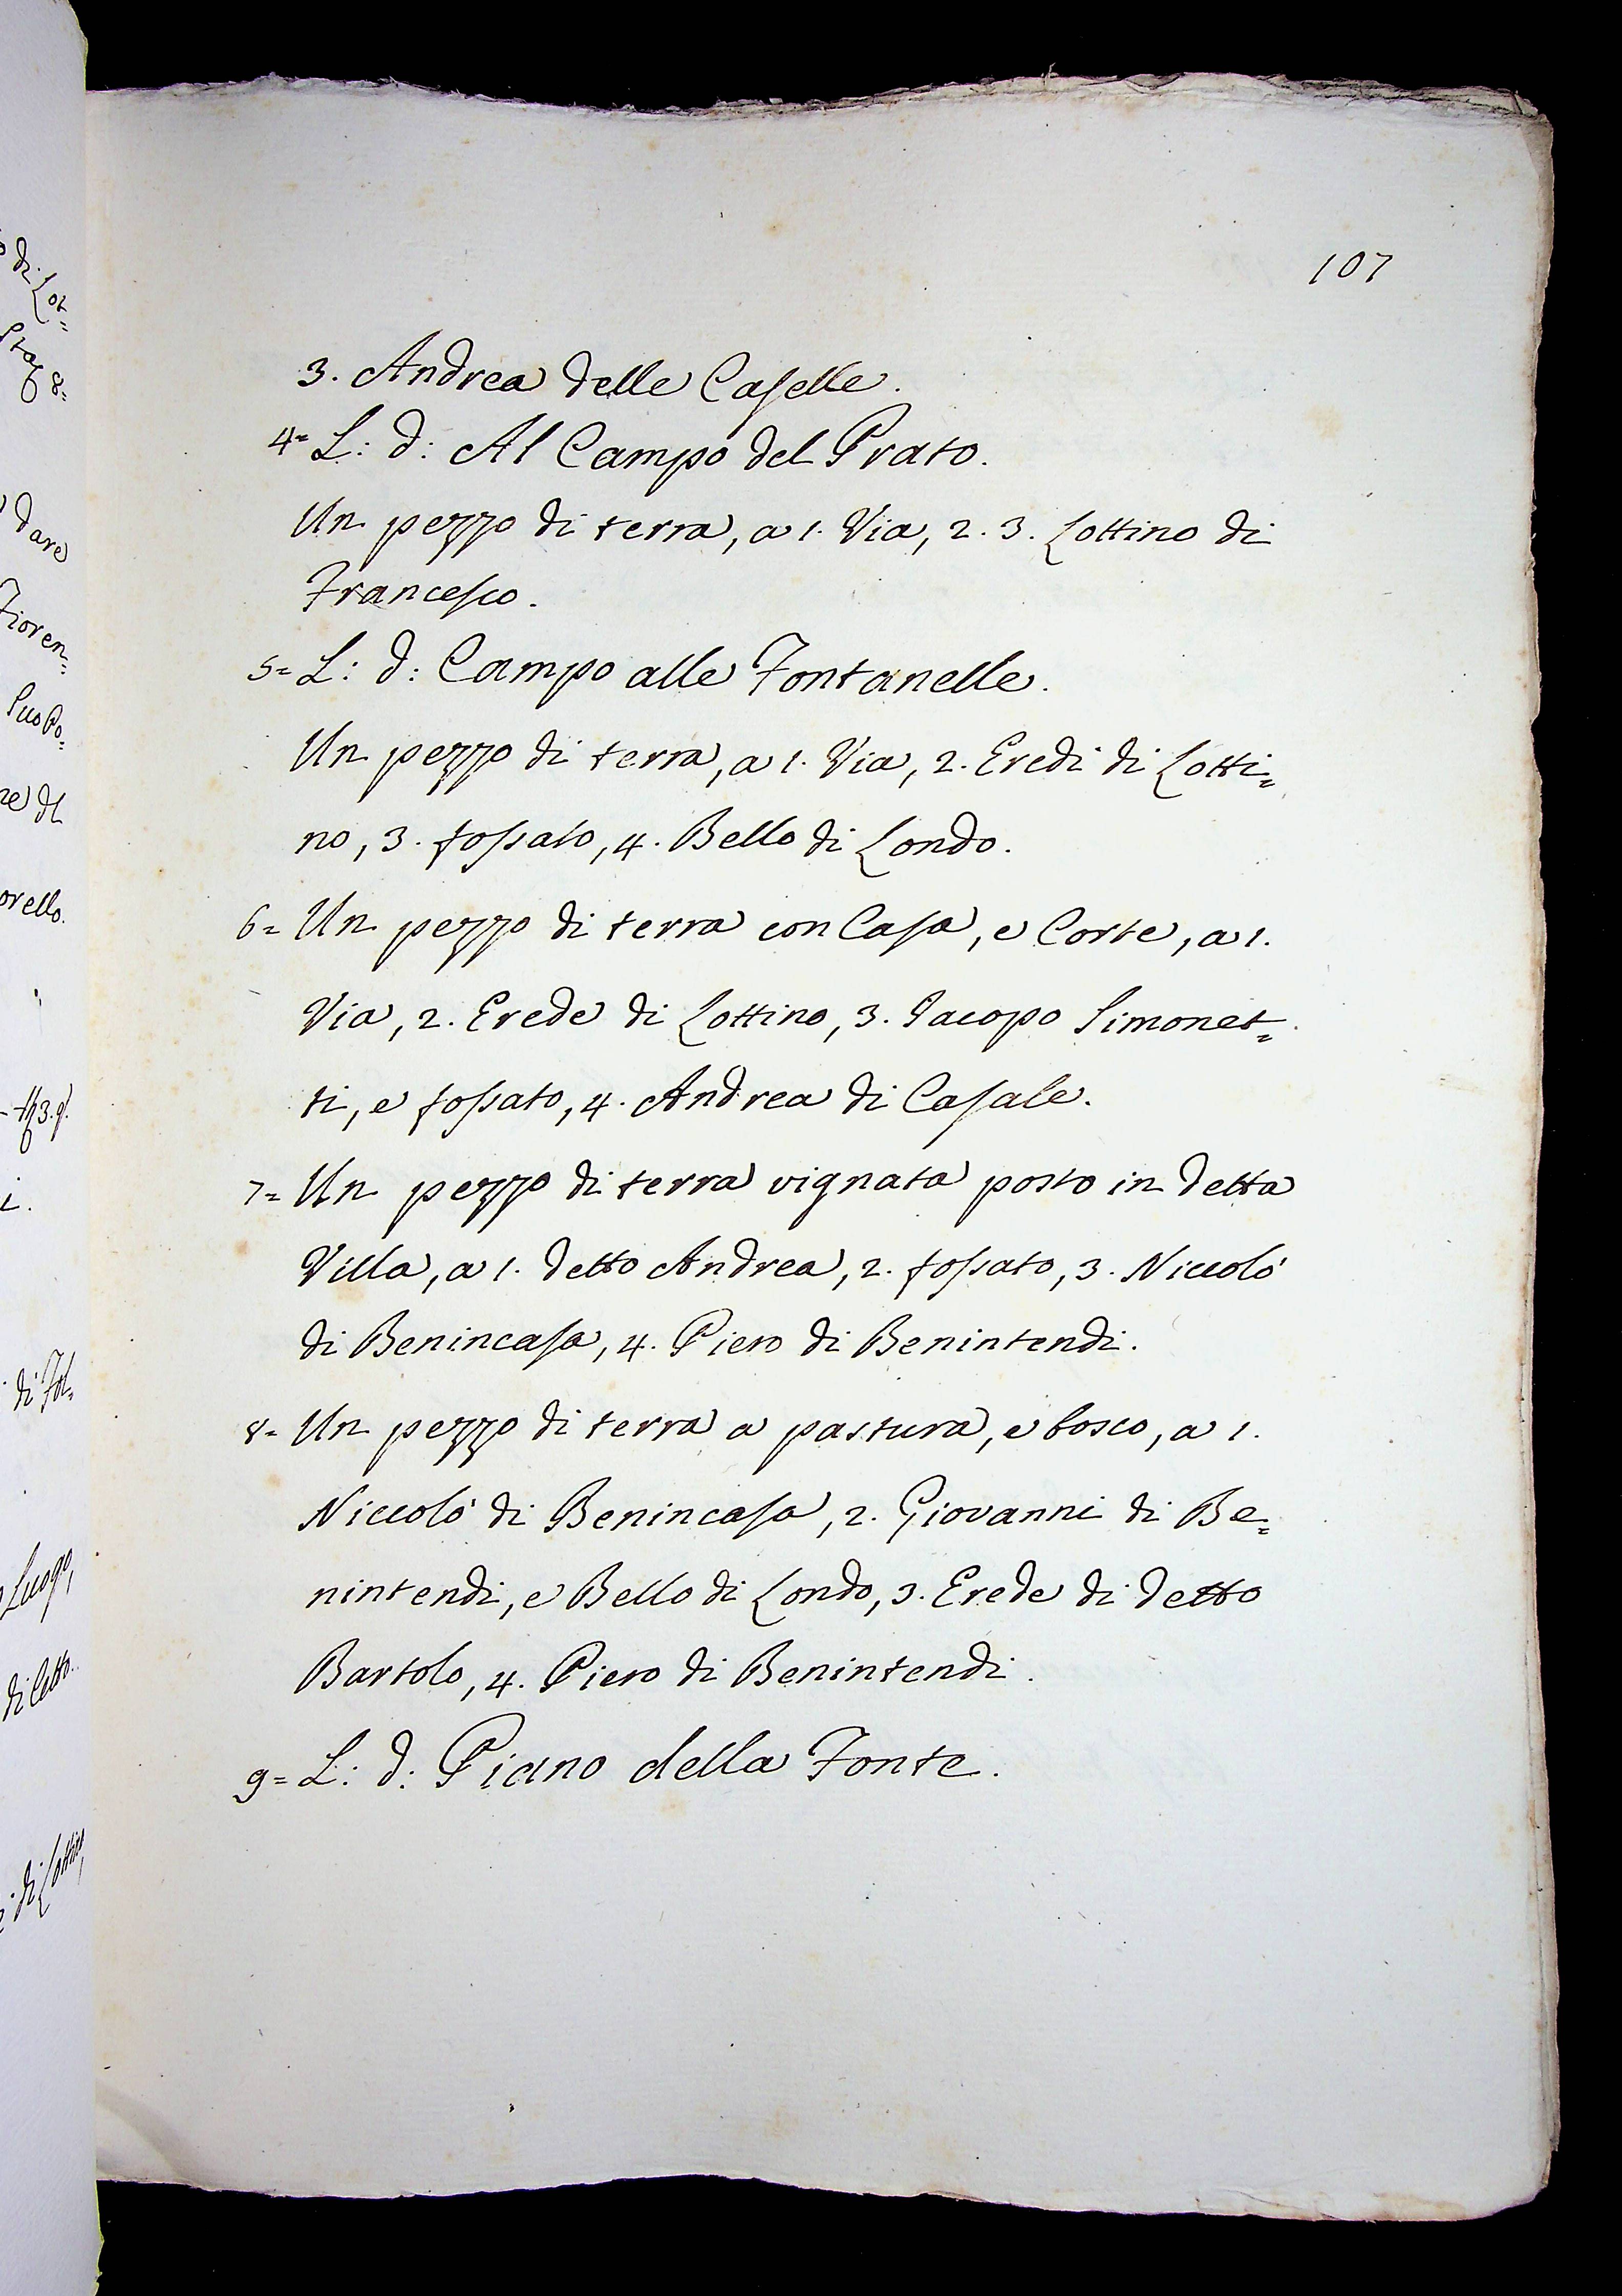 107
3. Andrea delle Caselle.
4= L: d: Al Campo del Prato.
Un pezzo di terra, a 1. Via, 2. 3. Lottino di
Francesco.
5= L: d: Campo alle Fontanelle.
Un pezzo di terra, a 1. Via, 2. Eredi di Lotti=
no, 3. fossato, 4. Bello di Londo.
6= Un pezzo di terra con Casa, e Corte, a 1.
Via, 2. Erede di Lottino, 3. Jacopo Simonet=
ti, e fossato, 4. Andrea di Casale.
7= Un pezzo di terra vignata posto in detta
Villa, a 1. detto Andrea, 2. fossato, 3. Niccolò
di Benincasa, 4. Piero di Benintendi.
8= Un pezzo di terra a pastura, e bosco, a 1.
Niccolò di Benincasa, 2. Giovanni di Be=
nintendi, e Bello di Londo, 3. Erede di detto
Bartolo, 4. Piero di Benintendi.
9= L: d: Piano della Fonte.